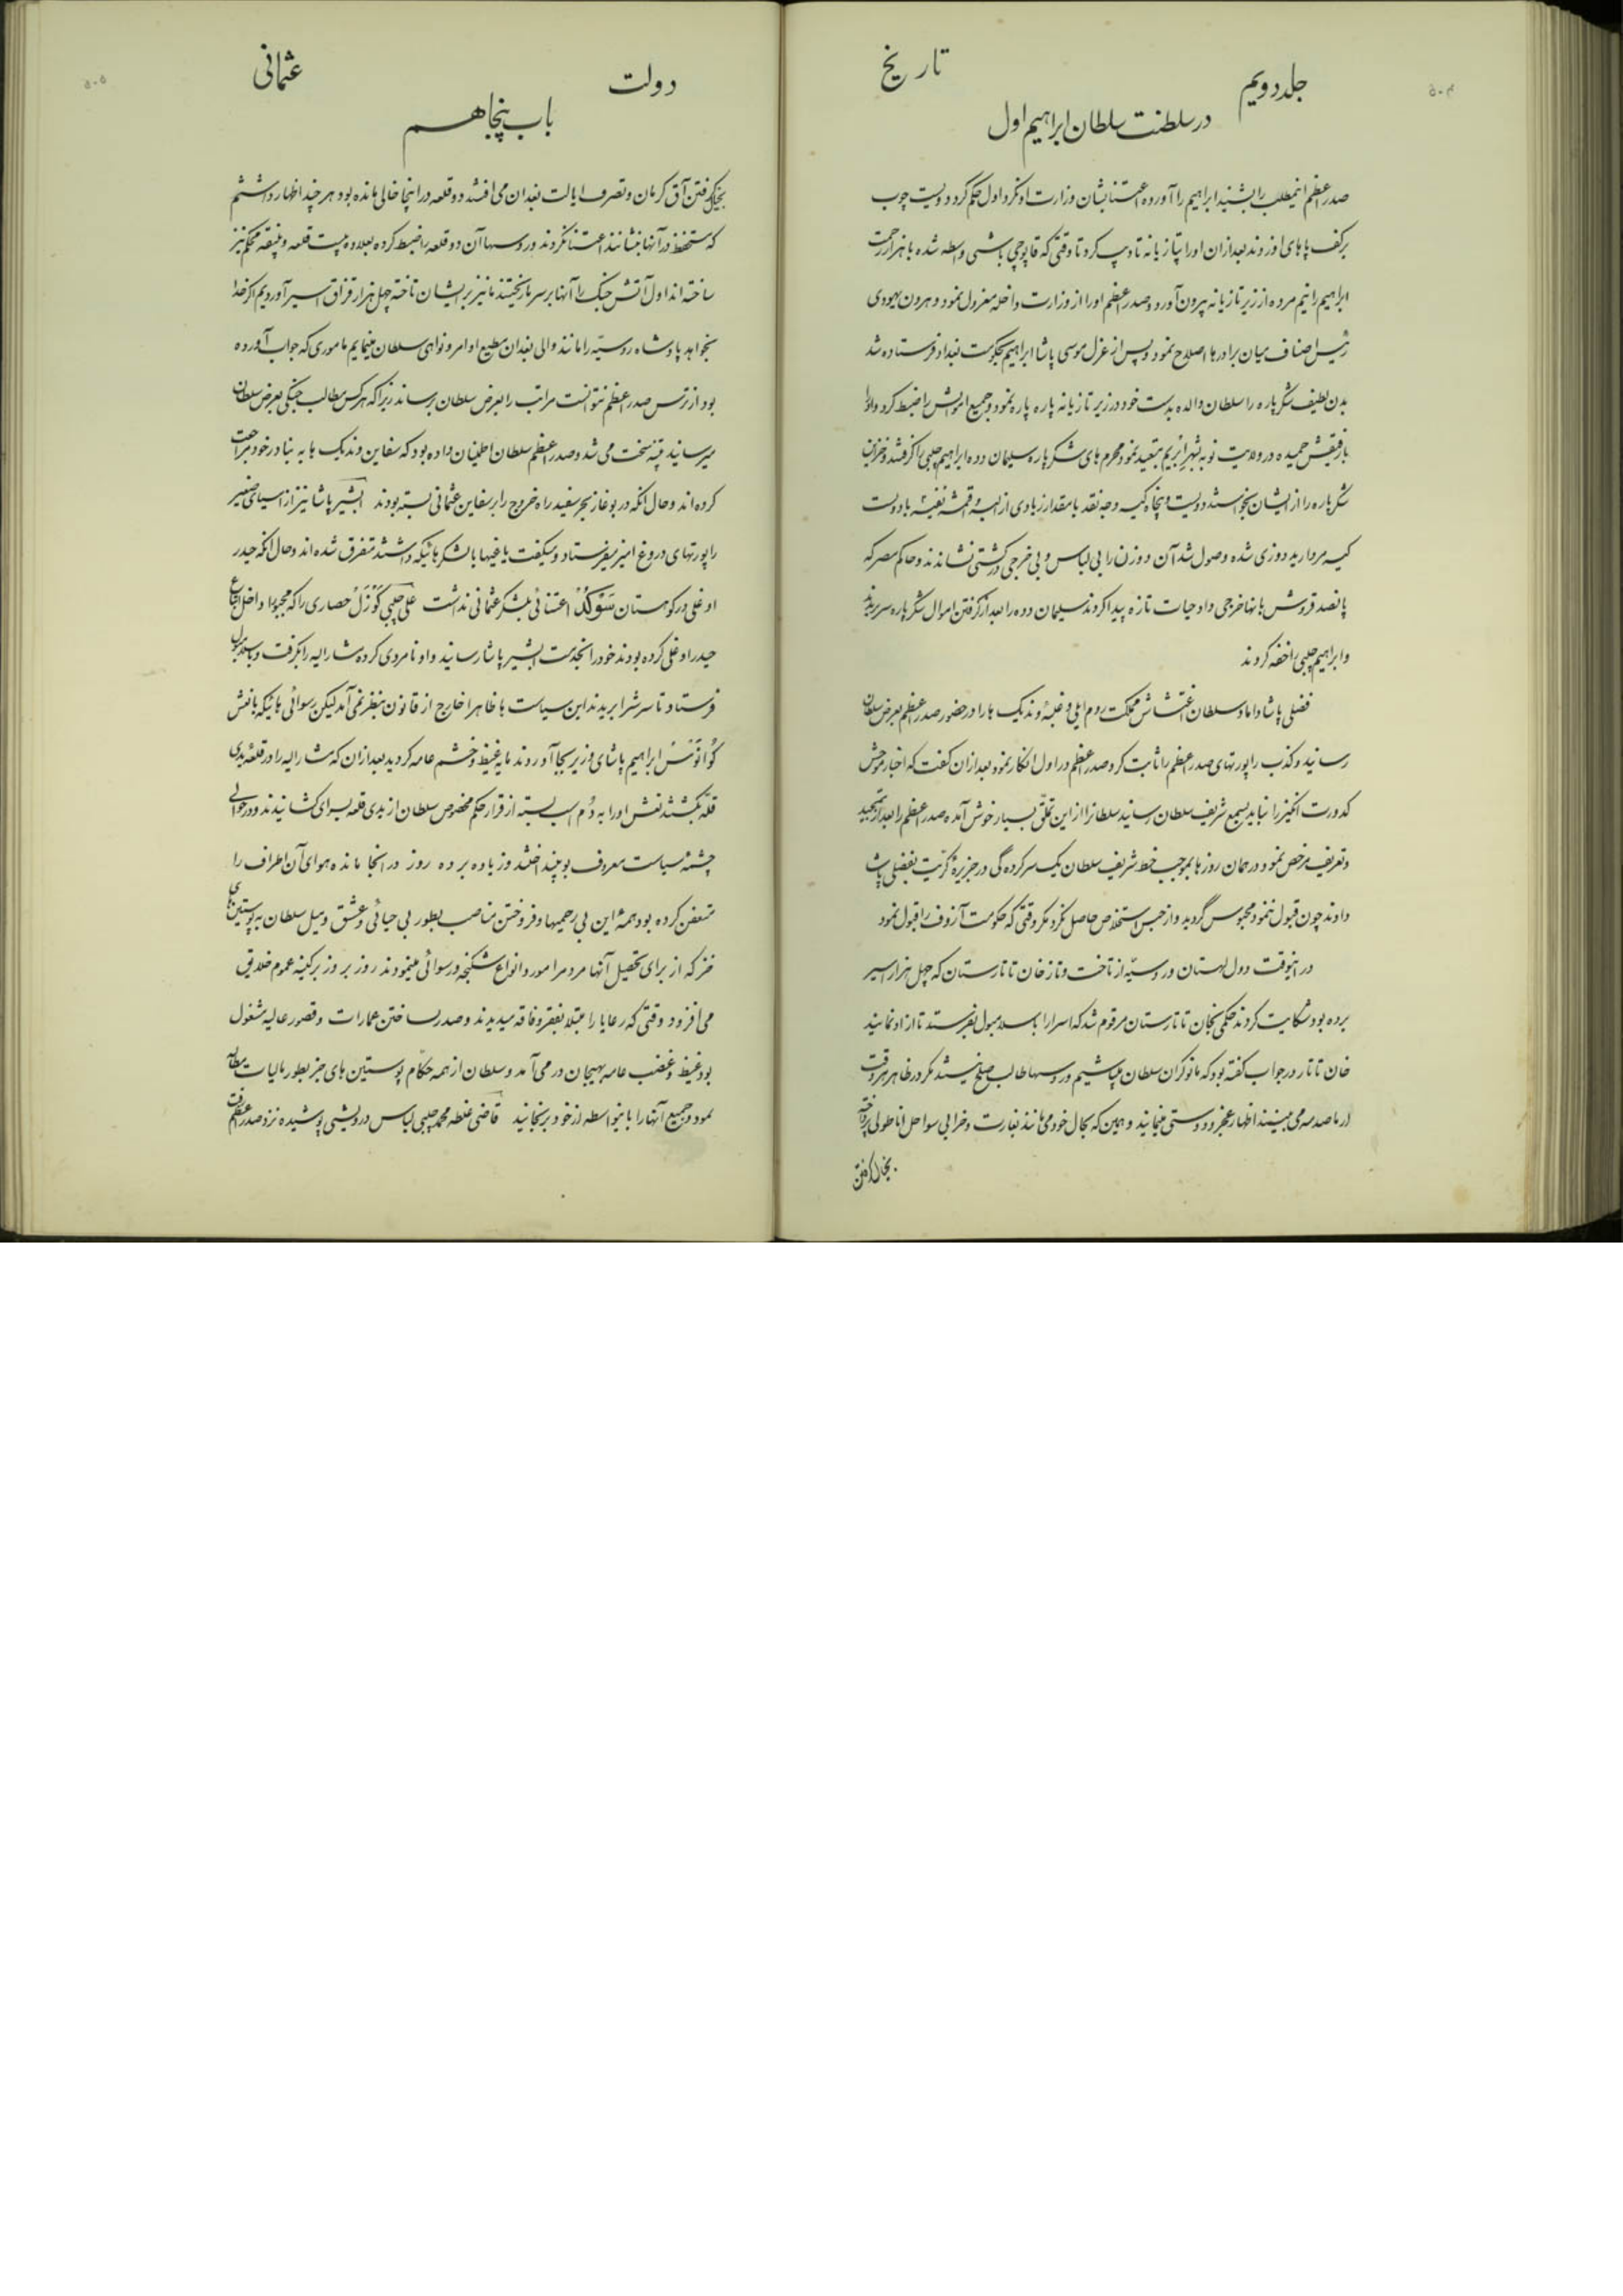 ۵۰۴
جلد دویم
تاریخ
در سلطنت سلطان ابراهیم اول
صدر اعظم اینمطلب را بشنید ابراهیم را آورده اعتنا بشان وزارت او نکرد اول حکم کرد دویست چوب
بر کف پاهای او زدند بعد از ان او را بتازیانه تادیب کرد تا وقتی که قاپوچی باشی واسطه شده با هزار زحمت
ابراهیم را نیم مرده از زیر تازیانه بیرون آورد و صدر اعظم او را از وزارت داخله معزول نمود و هرون یهودی
رئیس اصناف میان برادرها اصلاح نمود و پس از عزل موسی پاشا ابراهیم بحکومت بغداد فرستاده شد
بدن لطیف شکرپاره را سلطان والده بدست خود در زیر تازیانه پاره پاره نمود و جمیع اموالش را ضبط کرد و او را
با رفیقش حمیده در ولایت نوبه بشهر ابریم تبعید نمود محرم های شکرپاره سلیمان دده ابراهیم چلبی را گرفتند و خزاین
شکرپاره را از ایشان بخواستند دویست و پنجاه کیسه وجه نقد با مقدار زیادی از البسه و اقمشه نفیسه با دویست
کیسه مروارید دوزی شده وصول شد آن دو زن را بی لباس و بی خرجی در کشتی نشاندند و حاکم مصر که
پانصد قروش بانها خرجی داد حیات تازه پیدا کردند سلیمان دده را بعد از گرفتن اموال شکرپاره سر بریدند
و ابراهیم چلبی را خفه کردند
فضلی پاشا داماد سلطان اغتشاش مملکت روم ایلی و غلبهٔ وندیک ها را در حضور صدر اعظم بعرض سلطان
رسانید و کذب راپورتهای صدر اعظم را ثابت کرد صدر اعظم در اول انکار نمود بعد از ان گفت که اخبار موحش
کدورت انگیز را نباید بسمع شریف سلطان رسانید سلطانرا از این تملق بسیار خوش آمده صدر اعظم را بعد از تمجید
و تعریف مرخص نمود و در همان روزها بموجب خط شریف سلطان یک سرکرده گی در جزیرهٔ کریت بفضلی پاشا
دادند چون قبول ننمود محبوس گردید و از حبس استخلاص حاصل نکرد مگر وقتی که حکومت آزوف را قبول نمود
در انیوقت دول لهستان و روسیّه از تاخت و تاز خان تاتارستان که چهل هزار اسیر
برده بود شکایت کردند حکمی بخان تاتارستان مرقوم شد که اسرا را باسلامبول بفرستد تا ازاد نمایند
خان تاتار در جواب گفته بود که ما نوکران سلطان میباشیم و روسها طالب صلح نیستند مگر در ظاهر هر وقت
از ما صدمه می بینند اظهار عجز و دوستی مینمایند و همین که بحال خود می مانند بغارت و خرابی سواحل اناطولی پرداخته
بخیال گرفتن
۵۰۵
دولت
عثمانی
باب پنجاهم
بخیال گرفتن آق کرمان و تصرف ایالت بغدان می افتند دو قلعه در انجا خالی مانده بود هر چند اظهار داشتم
که مستحفظ در آنها بنشانند اعتنا نکردند و روسها آن دو قلعه را ضبط کرده بعلاوه بیست قلعه و نیقهٔ محکم نیز
ساخته اند اول آتش جنک را آنها بر سر ما ریختند ما نیز بر ایشان تاخته چهل هزار قزاق اسیر آوردیم اگر خدا
بخواهد پادشاه روسیّه را مانند والی بغدان مطیع اوامر و نواهی سلطان مینمایم ماموری که جواب آورده
بود از ترس صدر اعظم نتوانست مراتب را بعرض سلطان برساند زیرا که هر کس مطالب جنگی بعرض سلطان
میرسانید تنبیه سخت می شد و صدر اعظم سلطان اطمینان داده بود که سفاین وندیک ها به بنادر خود مراجعت
کرده اند و حال انکه در بوغاز بحر سفید راه خروج را بر سفاین عثمانی بسته بودند ابشیر پاشا نیز از اسیای صغیر
راپورتهای دروغ امیز میفرستاد و میگفت یاغیها با لشکر هائیکه داشتند متفرق شده اند و حال انکه حیدر
اوغلی در کوهستان سَوْکُدْ اعتنائی بلشکر عثمانی نداشت علی چلبی کُوزَلْ حصاری را که مجبورا داخل اتباع
حیدر اوغلی کرده بودند خود را بخدمت ابشیر پاشا رسانید و او نامردی کرده مشارالیه را بگرفت و باسلامبول
فرستاد تا سرش را بریدند این سیاست ها ظاهرا خارج از قانون بنظر نمی آمد لیکن رسوائی هائیکه با نعش
کُوانوْسْ ابراهیم پاشای وزیر بجا آوردند مایه غیظ و خشم عامه گردید بعد از ان که مشارالیه را در قلعهٔ یدی
قله بکشتند نعش او را به دُم اسب بسته از قرار حکم مخصوص سلطان از یدی قلعه بسرای کشانیدند و در حوالی
چشمهٔ سیاست معروف بوپیند انداختند و زیاده بر ده روز در انجا مانده هوای آن اطراف را
متعفن کرده بود همهٔ این بی رحمیها و فروختن مناصب بطور بی حیائی و عشق و میل سلطان به پوستین های
خز که از برای تحصیل آنها مردم را مورد انواع شکنجه و رسوائی مینمودند روز بروز بر کینه عموم خلایق
می افزود وقتی که رعایا را مبتلا بفقر و فاقه میدیدند و صدر بساختن عمارات و قصور عالیه مشغول
بود غیظ و غضب عامه بهیجان در می آمد و سلطان از همه حکام پوستین های خز بطور مالیات مطالبه
نمود و جمیع آنها را باینواسطه از خود برنجانید قاضی غلطه محمد چلبی لباس درویشی پوشیده نزد صدر اعظم رفت